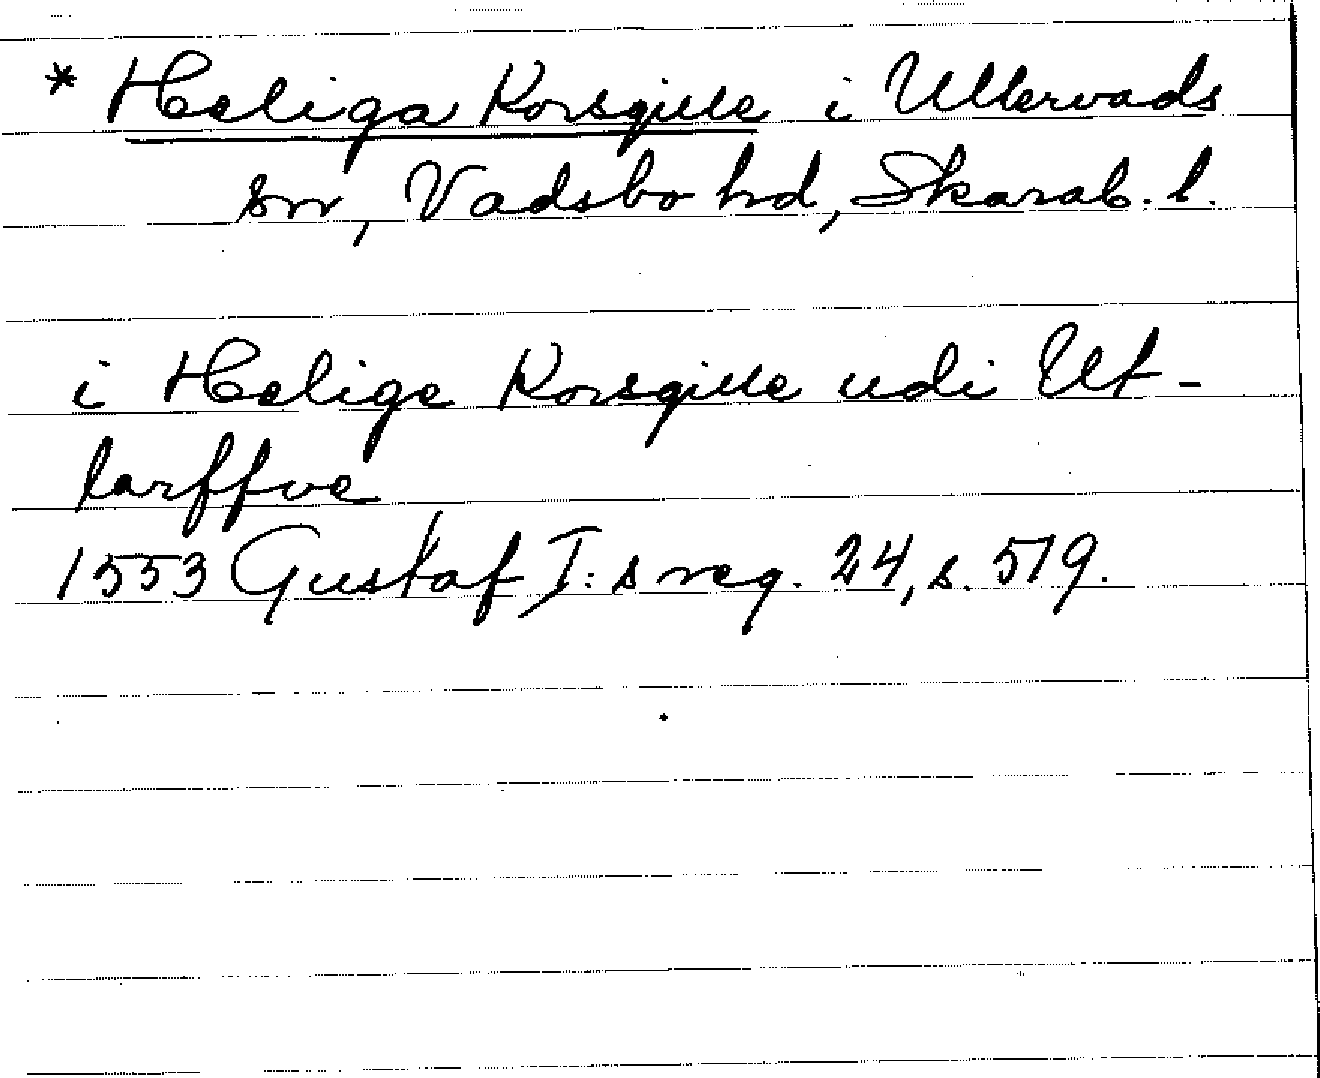 * Heliga Korsgille i Ullervads
sn, Vadsbo hd, Skarab. l.
i Helige Korsgille udi Ul-
larffve
1553 Gustaf I:s reg. 24, s. 519.